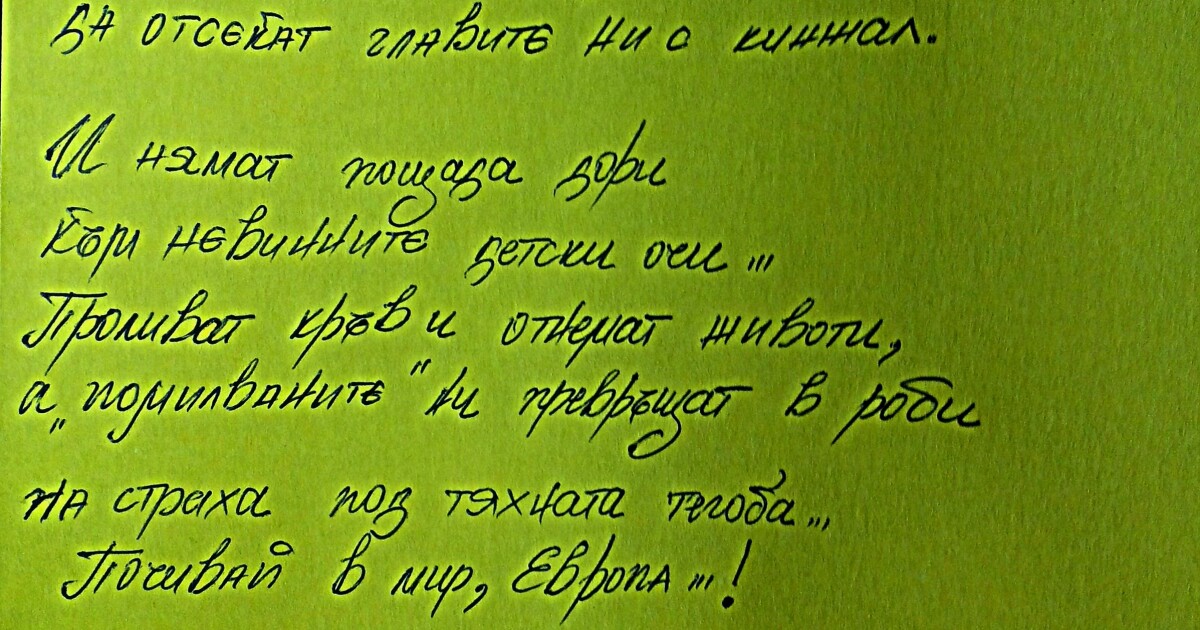 да отсекат главите ни с кинжал.
И нямат пощада дори
към невинните детски очи...
Проливат кръв и отнемат животи,
а „помилваните" ни превръщат в роби
на страха под тяхната тегоба...
Почивай в мир, Европа...!